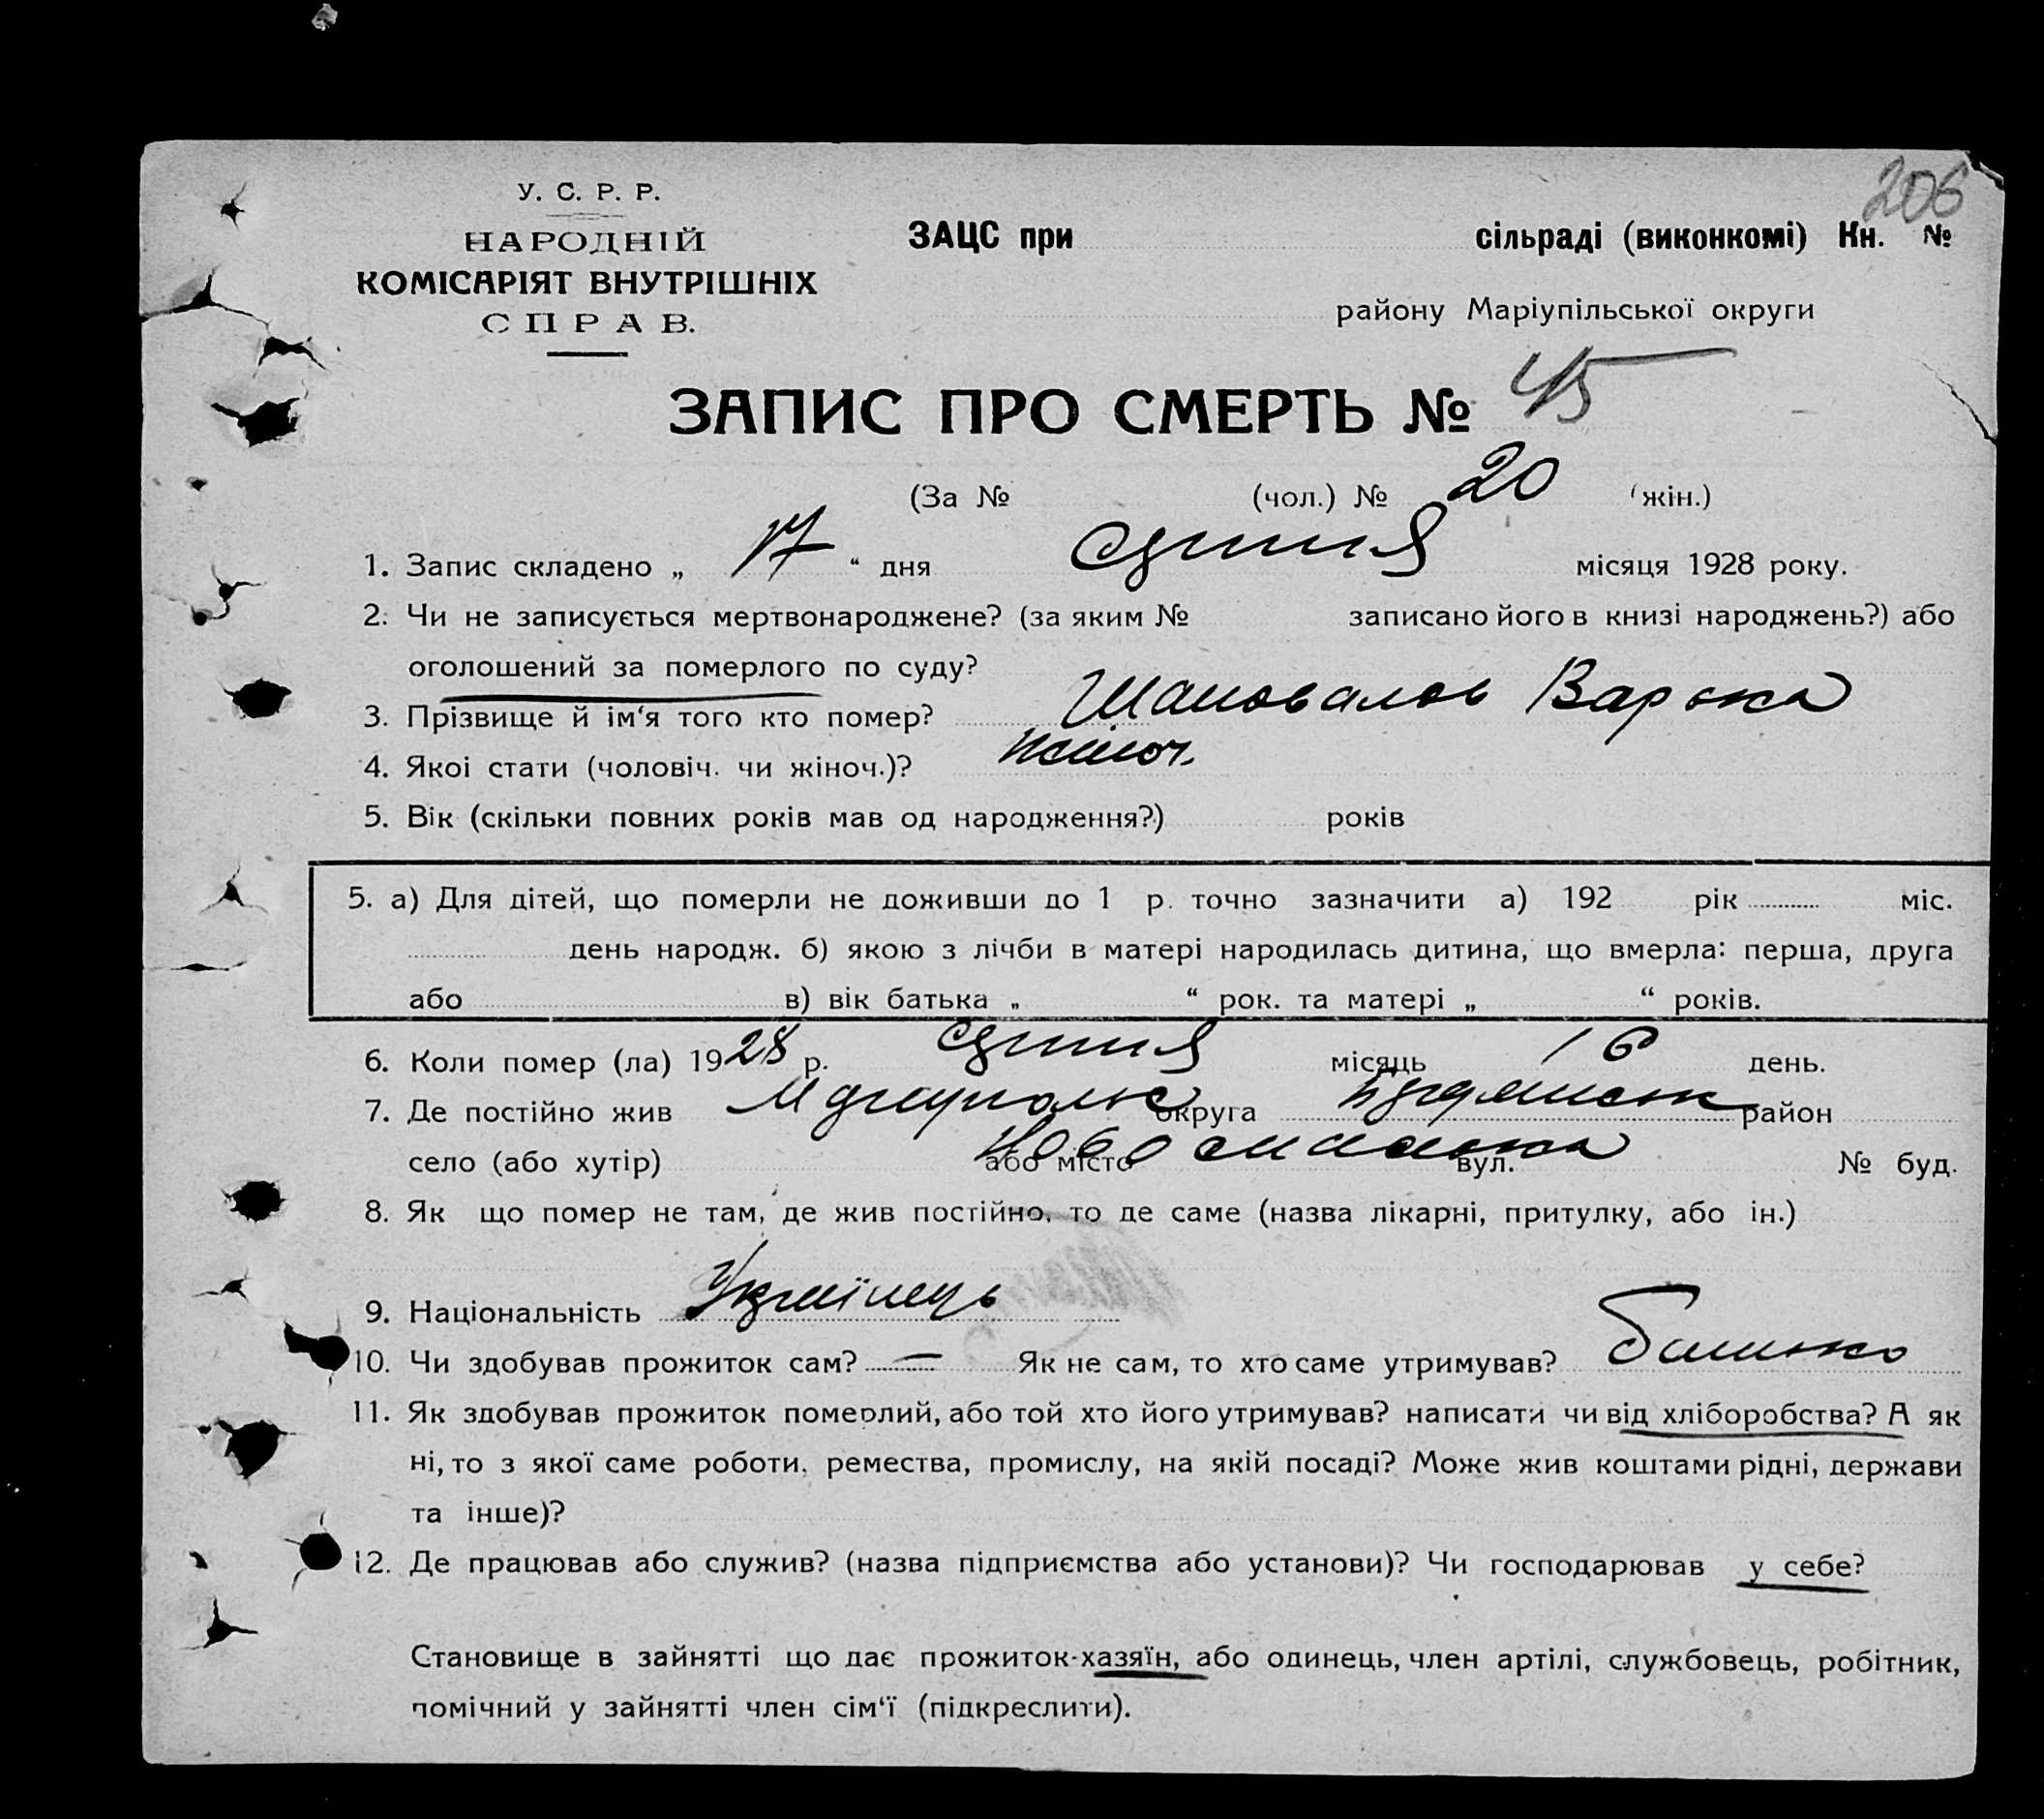 206
У. С. Р. Р.
НАРОДНІЙ
КОМІСАРІЯТ ВНУТРІШНІХ
СПРАВ.
ЗАЦС при сільраді (виконкомі) Кн. №
району Маріупільської округи
ЗАПИС ПРО СМЕРТЬ № 45
(За № (чол.) № 20 (жін.)
1. Запис складено „ 17 “ дня місяця 1928 року.
2. Чи не записується мертвонароджене? (за яким № записано його в книзі народжень?) або
оголошений за померлого по суду?
3. Прізвище й ім‘я того кто помер? Шаповалов Варька
4. Якоі стати (чоловіч. чи жіноч.)? жіноч.
5. Вік (скільки повних років мав од народження?) років
5. а) Для дітей, що померли не доживши до 1 р. точно зазначити а) 192 рік міс.
день народж. б) якою з лічби в матері народилась дитина, що вмерла: перша, друга
або в) вік батька „ “ рок. та матері „ “ років.
6. Коли помер (ла) 1928 р. місяць 16 день.
7. Де постійно жив Маріуполь округа район
село (або хутір) або місто вул. № буд.
8. Як що помер не там, де жив постійно, то де саме (назва лікарні, притулку, або ін.)
9. Національність Українець
10. Чи здобував прожиток сам? — Як не сам, то хто саме утримував? батько
11. Як здобував прожиток померлий, або той хто його утримував? написати чи від хліборобства? А як
ні, то з якої саме роботи, ремества, промислу, на якій посаді? Може жив коштами рідні, держави
та інше)?
12. Де працював або служив? (назва підприємства або установи)? Чи господарював у себе?
Становище в зайнятті що дає прожиток-хазяїн, або одинець, член артілі, службовець, робітник,
помічний у зайнятті член сім‘ї (підкреслити).